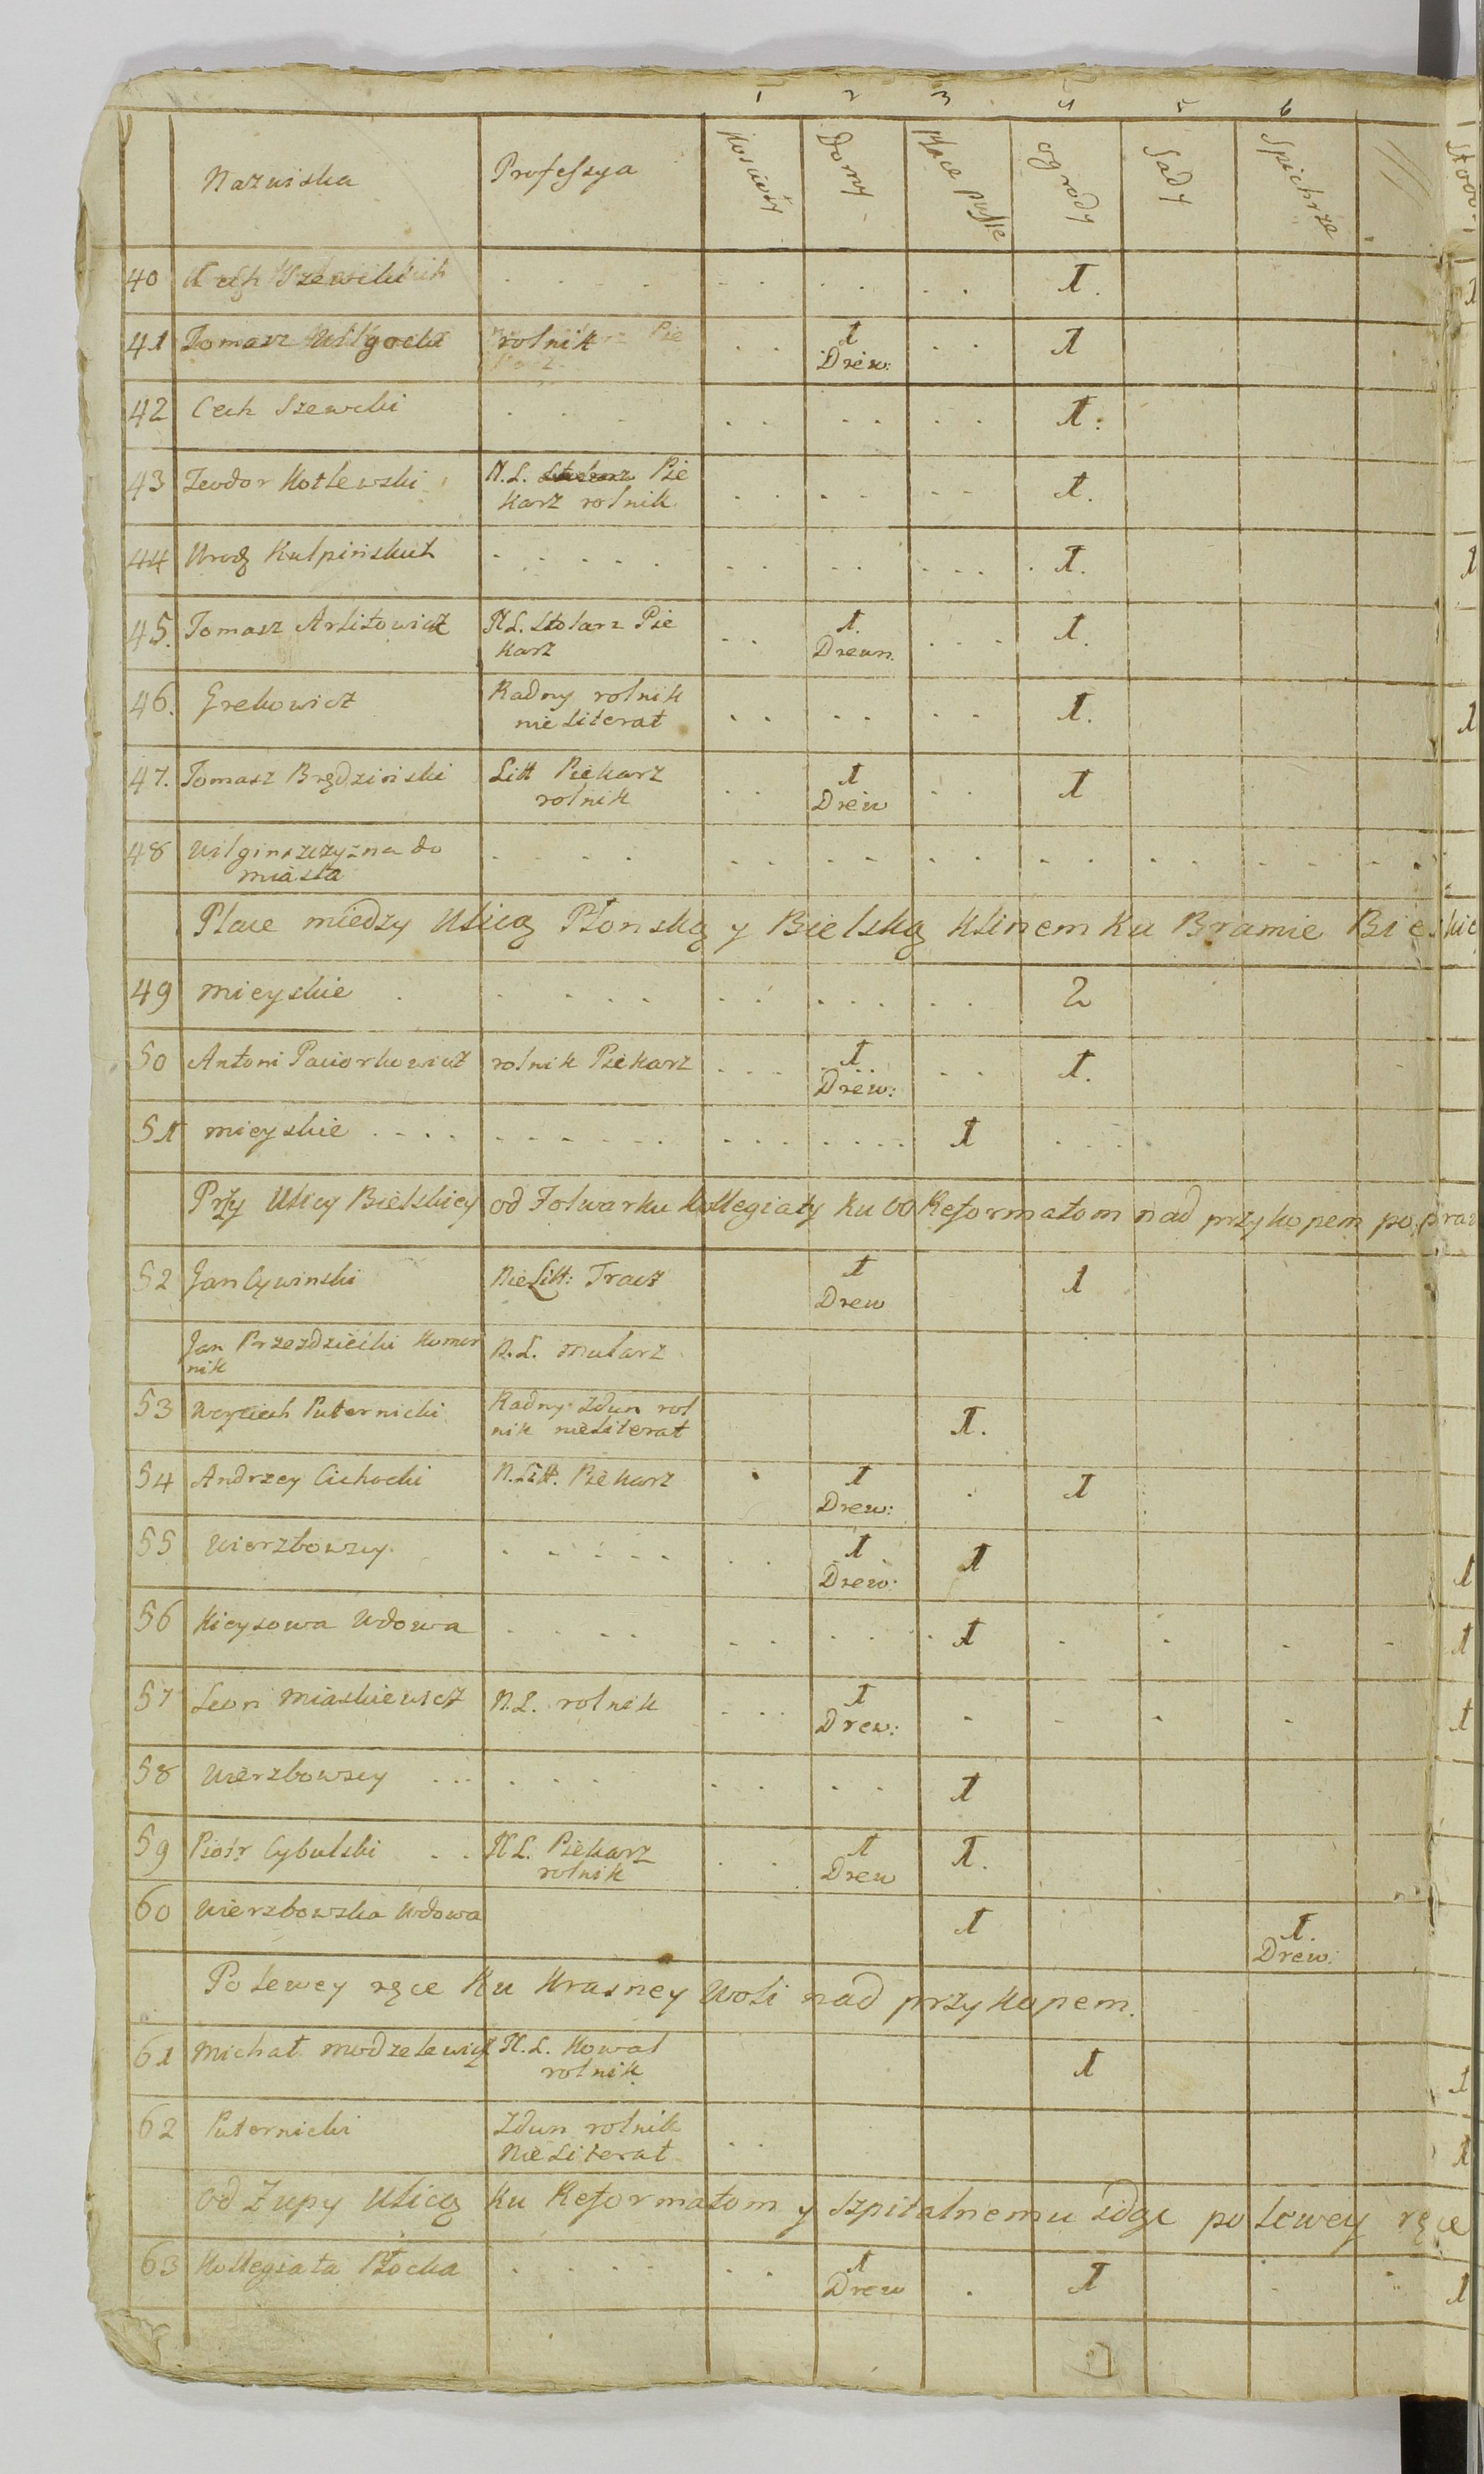 1 2 3 4 5 6
Nazwiska Professya Kościoły Domy Place puste ogrody Sady Spichrze
40 . . . . . . . . . . 1.
41 Tomasz rolnik . . 1 . . 1
Drew:
42 Cech Szewcki . . . . . . . . . 1:
43 Teodor Kotlewski N.L. Pie . . . . . . . 1.
karz rolnik
44 Urodz Kulpińskich . . . . . . . . . . . . . 1.
45. Tomasz Arlitowicz N L. Stolarz Pie . . 1. . . . 1.
karz Drewn.
46. Grekowicz Radny rolnik . . . . . . 1.
nie literat
47. Tomasz Brędziński Litt Piekarz . . 1 . . 1
rolnik Drew
48 Wilginszczyzna do . . . . . . . . . . . . . . . .
miasta
Place miedzy Ulicą Płonską y Bielską Klinem ku Bramie Bielskie
49 mieyskie . . . . . . . . . . . . . 2
50 Antoni Paciorkowicz rolnik Piekarz . . . 1 . . 1.
Drew:
51 mieyskie . . . . . . . . . . . . . . . . . 1 . . .
Przy Ulicy Bielskiey od Folwarku Kollegiaty ku OO Reformatom nad przykopem po praw
52 Jan Cywinski Nie Litt: Tracz 1 1
Drew
Jan Przezdziecki Komor N.L. mularz
nik
53 Woyciech Puternicki Radny Zdun rol 1.
nik nieliterat
54 Andrzey Cichocki N.Litt. Piekarz . 1 . 1
Drew:
55 Wierzbowscy . . . . . . . . 1 1
Drew:
56 Kieysowa Wdowa . . . . . . . . . . 1 . . . .
57 Leon Miaskiewicz N.L. rolnik . . . 1 . . . .
Drew:
58 Wierzbowscy . . . . . . . . . . . 1
59 Piotr Cybulski . . N L. Piekarz . . 1 1.
rolnik Drew
60 Wierzbowska Wdowa 1 1.
Drew:
Po lewey ręce ku Krasney Woli nad przykopem.
61 Michał modzelewicz N.L. Kowal 1
rolnik
62 Puternicki Zdun rolnik . .
Nie Literat
od Żupy Ulicą ku Reformatom y Szpitalnemu idąc po lewey ręce
63 Kollegiata Płocka . . . . . . 1 . 1
Drew